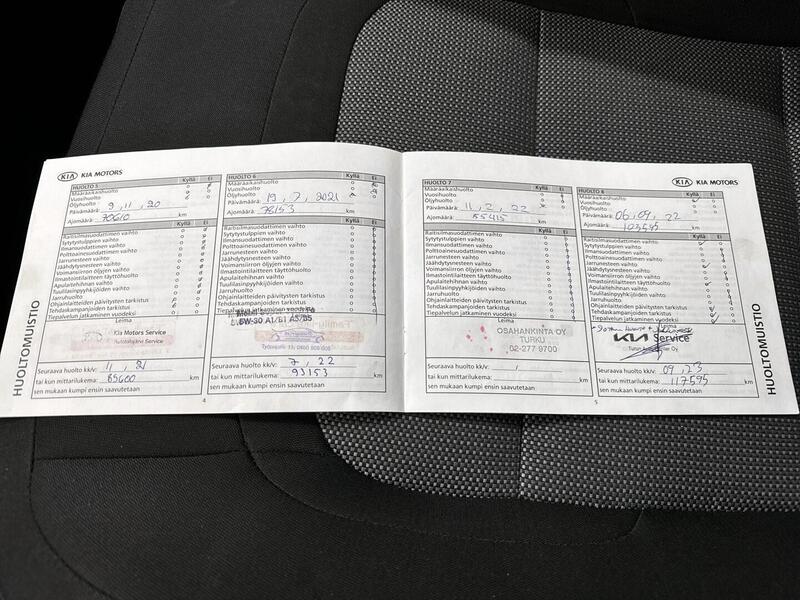 KIA KIA MOTORS
HUOLTO 5 Kyllä Ei
Määräaikaishuolto
Vuosihuolto
Öljyhuolto
Päivämäärä: 9, 11, 20
Ajomäärä: 70610 km
Kyllä Ei
Raitisilmasuodattimen vaihto
Sytytystulppien vaihto
Ilmansuodattimen vaihto
Polttoainesuodattimen vaihto
Jarrunesteen vaihto
Jäähdytysnesteen vaihto
Voimansiirron öljyjen vaihto
Ilmastointilaitteen täyttöhuolto
Apulaitehihnan vaihto
Tuulilasinpyyhkijöiden vaihto
Jarruhuolto
Ohjainlaitteiden päivitysten tarkistus
Tehdaskampanjoiden tarkistus
Tiepalvelun jatkaminen vuodeksi
Leima
Kia Motors Service
Seuraava huolto kk/v: 11, 21
tai kun mittarilukema: 85600 km
sen mukaan kumpi ensin saavutetaan
4
HUOLTOMUISTIO
HUOLTO 6 Kyllä Ei
Määräaikaishuolto
Vuosihuolto
Öljyhuolto
Päivämäärä: 19, 7, 2021
Ajomäärä: 78153 km
Kyllä Ei
Raitisilmasuodattimen vaihto
Sytytystulppien vaihto
Ilmansuodattimen vaihto
Polttoainesuodattimen vaihto
Jarrunesteen vaihto
Jäähdytysnesteen vaihto
Voimansiirron öljyjen vaihto
Ilmastointilaitteen täyttöhuolto
Apulaitehihnan vaihto
Tuulilasinpyyhkijöiden vaihto
Jarruhuolto
Ohjainlaitteiden päivitysten tarkistus
Tehdaskampanjoiden tarkistus
5W-30 A1/B1 A5/B5
Seuraava huolto kk/v: 7, 22
tai kun mittarilukema: 93153 km
sen mukaan kumpi ensin saavutetaan
HUOLTO 7 Kyllä Ei
Määräaikaishuolto
Vuosihuolto
Öljyhuolto
Päivämäärä: 11, 2, 22
Ajomäärä: 85415 km
Kyllä Ei
Raitisilmasuodattimen vaihto
Sytytystulppien vaihto
Ilmansuodattimen vaihto
Polttoainesuodattimen vaihto
Jarrunesteen vaihto
Jäähdytysnesteen vaihto
Voimansiirron öljyjen vaihto
Ilmastointilaitteen täyttöhuolto
Apulaitehihnan vaihto
Tuulilasinpyyhkijöiden vaihto
Jarruhuolto
Ohjainlaitteiden päivitysten tarkistus
Tehdaskampanjoiden tarkistus
Tiepalvelun jatkaminen vuodeksi
Leima
OSAHANKINTA OY
TURKU
02-277 9700
Seuraava huolto kk/v:
tai kun mittarilukema: km
sen mukaan kumpi ensin saavutetaan
KIA KIA MOTORS
HUOLTO 8 Kyllä Ei
Määräaikaishuolto
Vuosihuolto
Öljyhuolto
Päivämäärä: 06, 09, 22
Ajomäärä: 102595 km
Kyllä Ei
Raitisilmasuodattimen vaihto
Sytytystulppien vaihto
Ilmansuodattimen vaihto
Polttoainesuodattimen vaihto
Jarrunesteen vaihto
Jäähdytysnesteen vaihto
Voimansiirron öljyjen vaihto
Ilmastointilaitteen täyttöhuolto
Apulaitehihnan vaihto
Tuulilasinpyyhkijöiden vaihto
Jarruhuolto
Ohjainlaitteiden päivitysten tarkistus
Tehdaskampanjoiden tarkistus
Tiepalvelun jatkaminen vuodeksi
Leima
KIA Service
Seuraava huolto kk/v: 09, 23
tai kun mittarilukema: 117595 km
sen mukaan kumpi ensin saavutetaan
5
HUOLTOMUISTIO